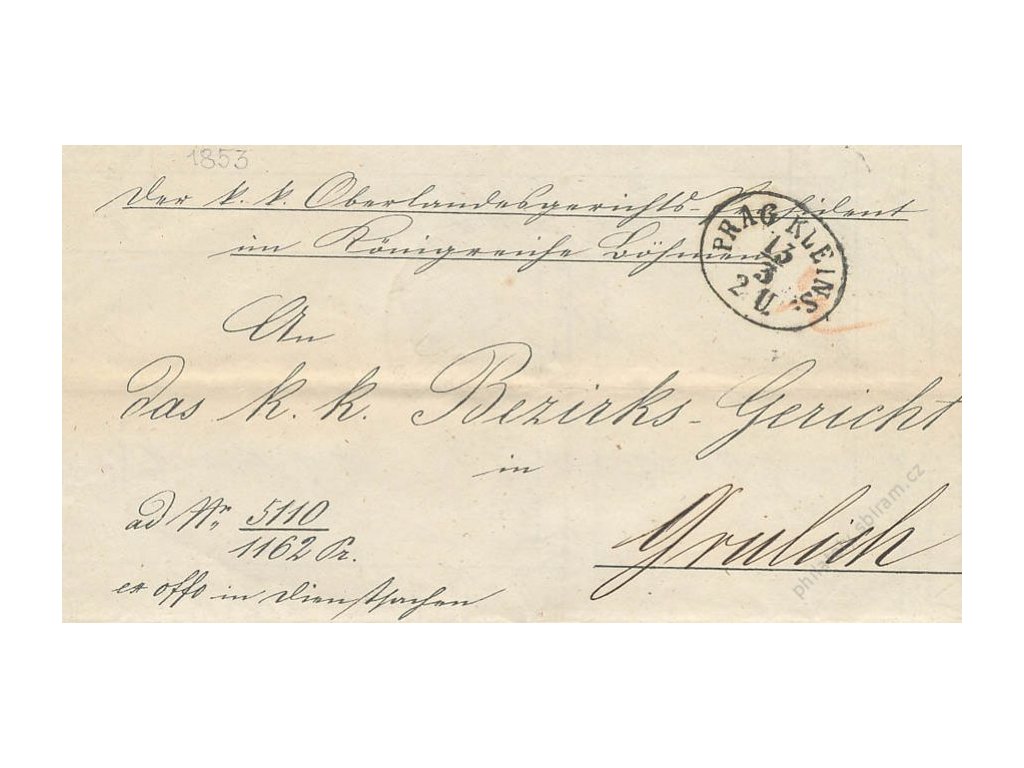 1853
Der k. k. Oberlandesgerichts-Präsident
im Königreiche Böhmen
PRAG KLEINS:
13
3
2 U.
An
das k. k. Bezirks-Gericht
in
ad Nr. 5110
1162 Pr.
Grulich
ex offo in Dienstsachen